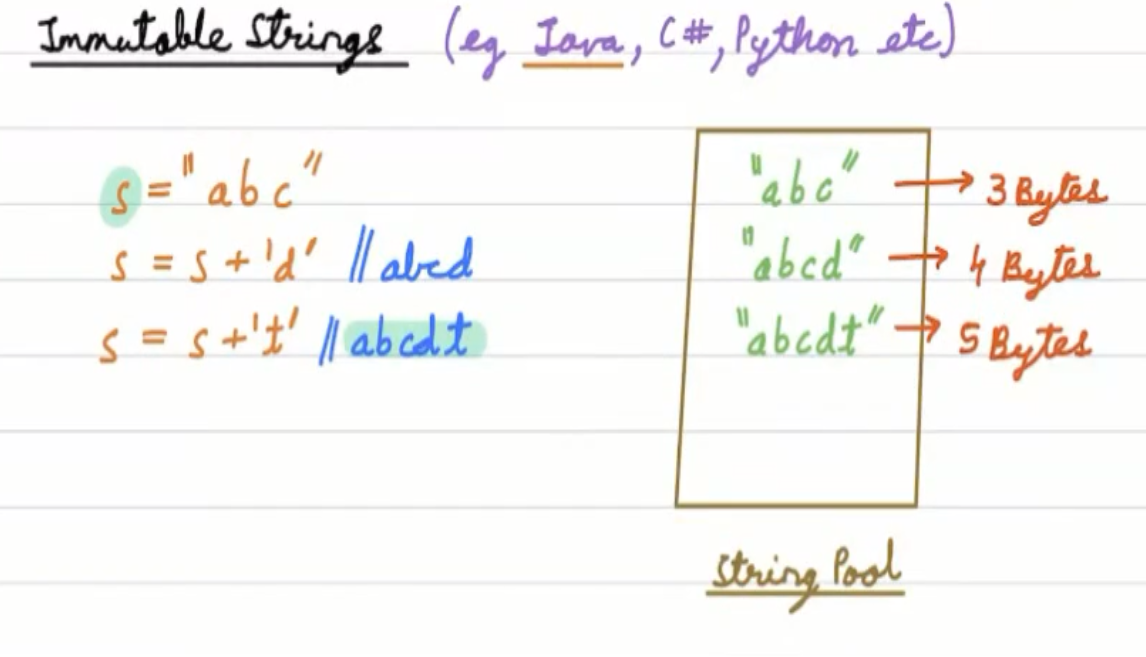 Immutable Strings (eg Java, C#, Python etc)
s = "abc"
s = s + 'd' //abcd
s = s + 't' //abcdt
"abc" → 3 Bytes
"abcd" → 4 Bytes
"abcdt" → 5 Bytes
String Pool